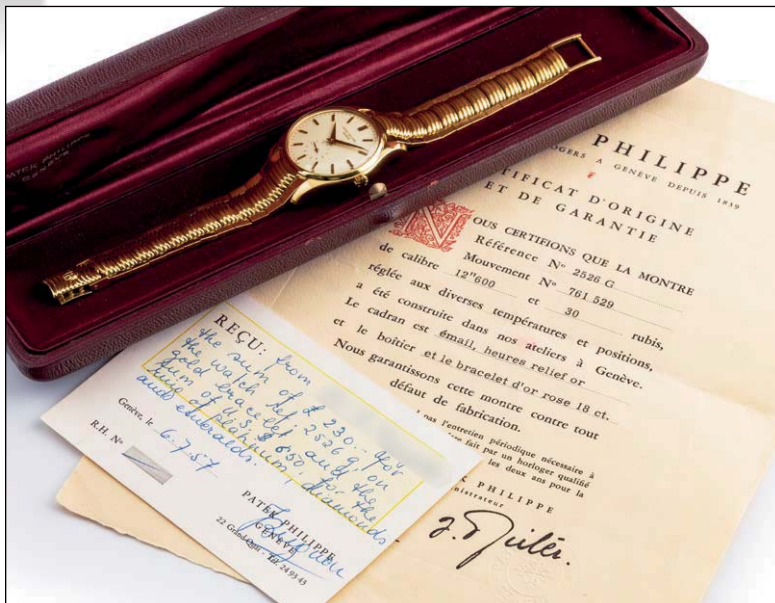 PATEK PHILIPPE
GENÈVE
PHILIPPE
OGERS A GENÈVE DEPUIS 1839
TIFICAT D'ORIGINE
ET DE GARANTIE
NOUS CERTIFIONS QUE LA MONTRE
Référence No 2526 G
Mouvement No 761 529
de calibre 12"600 et 30 rubis,
réglée aux diverses températures et positions,
a été construite dans nos ateliers à Genève.
Le cadran est émail, heures relief or
et le boîtier et le bracelet d'or rose 18 ct.
Nous garantissons cette montre contre tout
défaut de fabrication.
pas l'entretien périodique nécessaire à
fait par un horloger qualifié
les deux ans pour la
PHILIPPE
ministrateur
REÇU: from
the sum of £ 230.- for
the watch ref. 2526 g, on
gold bracelet and the
sum of U.S. $ 650, for the
ring of platinum, diamonds
and emeralds.
Genève, le 6.7.57
R.H. No
PATEK PHILIPPE
GENÈVE
22 Grand-Quai - Tél. 24 93 43